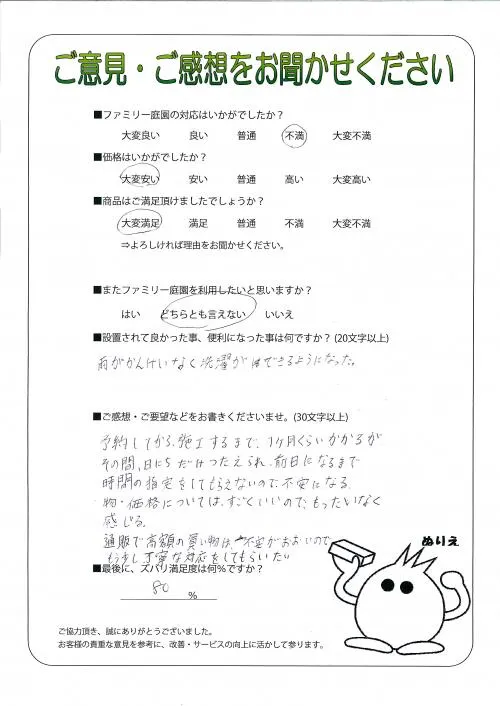 ご意見・ご感想をお聞かせください
■ファミリー庭園の対応はいかがでしたか？
大変良い 良い 普通 不満 大変不満
■価格はいかがでしたか？
大変安い 安い 普通 高い 大変高い
■商品はご満足頂けましたでしょうか？
大変満足 満足 普通 不満 大変不満
⇒よろしければ理由をお聞かせください。
■またファミリー庭園を利用したいと思いますか？
はい どちらとも言えない いいえ
■設置されて良かった事、便利になった事は何ですか？(20文字以上)
雨がかんけいなく洗濯がはできるようになった。
■ご感想・ご要望などをお書きくださいませ。(30文字以上)
予約してから、施工するまで、1ヶ月くらいかかるが
その間、日にちだけつたえられ、前日になるまで
時間の指定をしてもらえないので、不安になる。
物・価格については、すごくいいので、もったいなく
感じる。
通販で高額の買い物は、不安がおおいので
もう少し丁寧な対応をしてもらいたい
■最後に、ズバリ満足度は何％ですか？
80 ％
ぬりえ
ご協力頂き、誠にありがとうございました。
お客様の貴重な意見を参考に、改善・サービスの向上に活かして参ります。